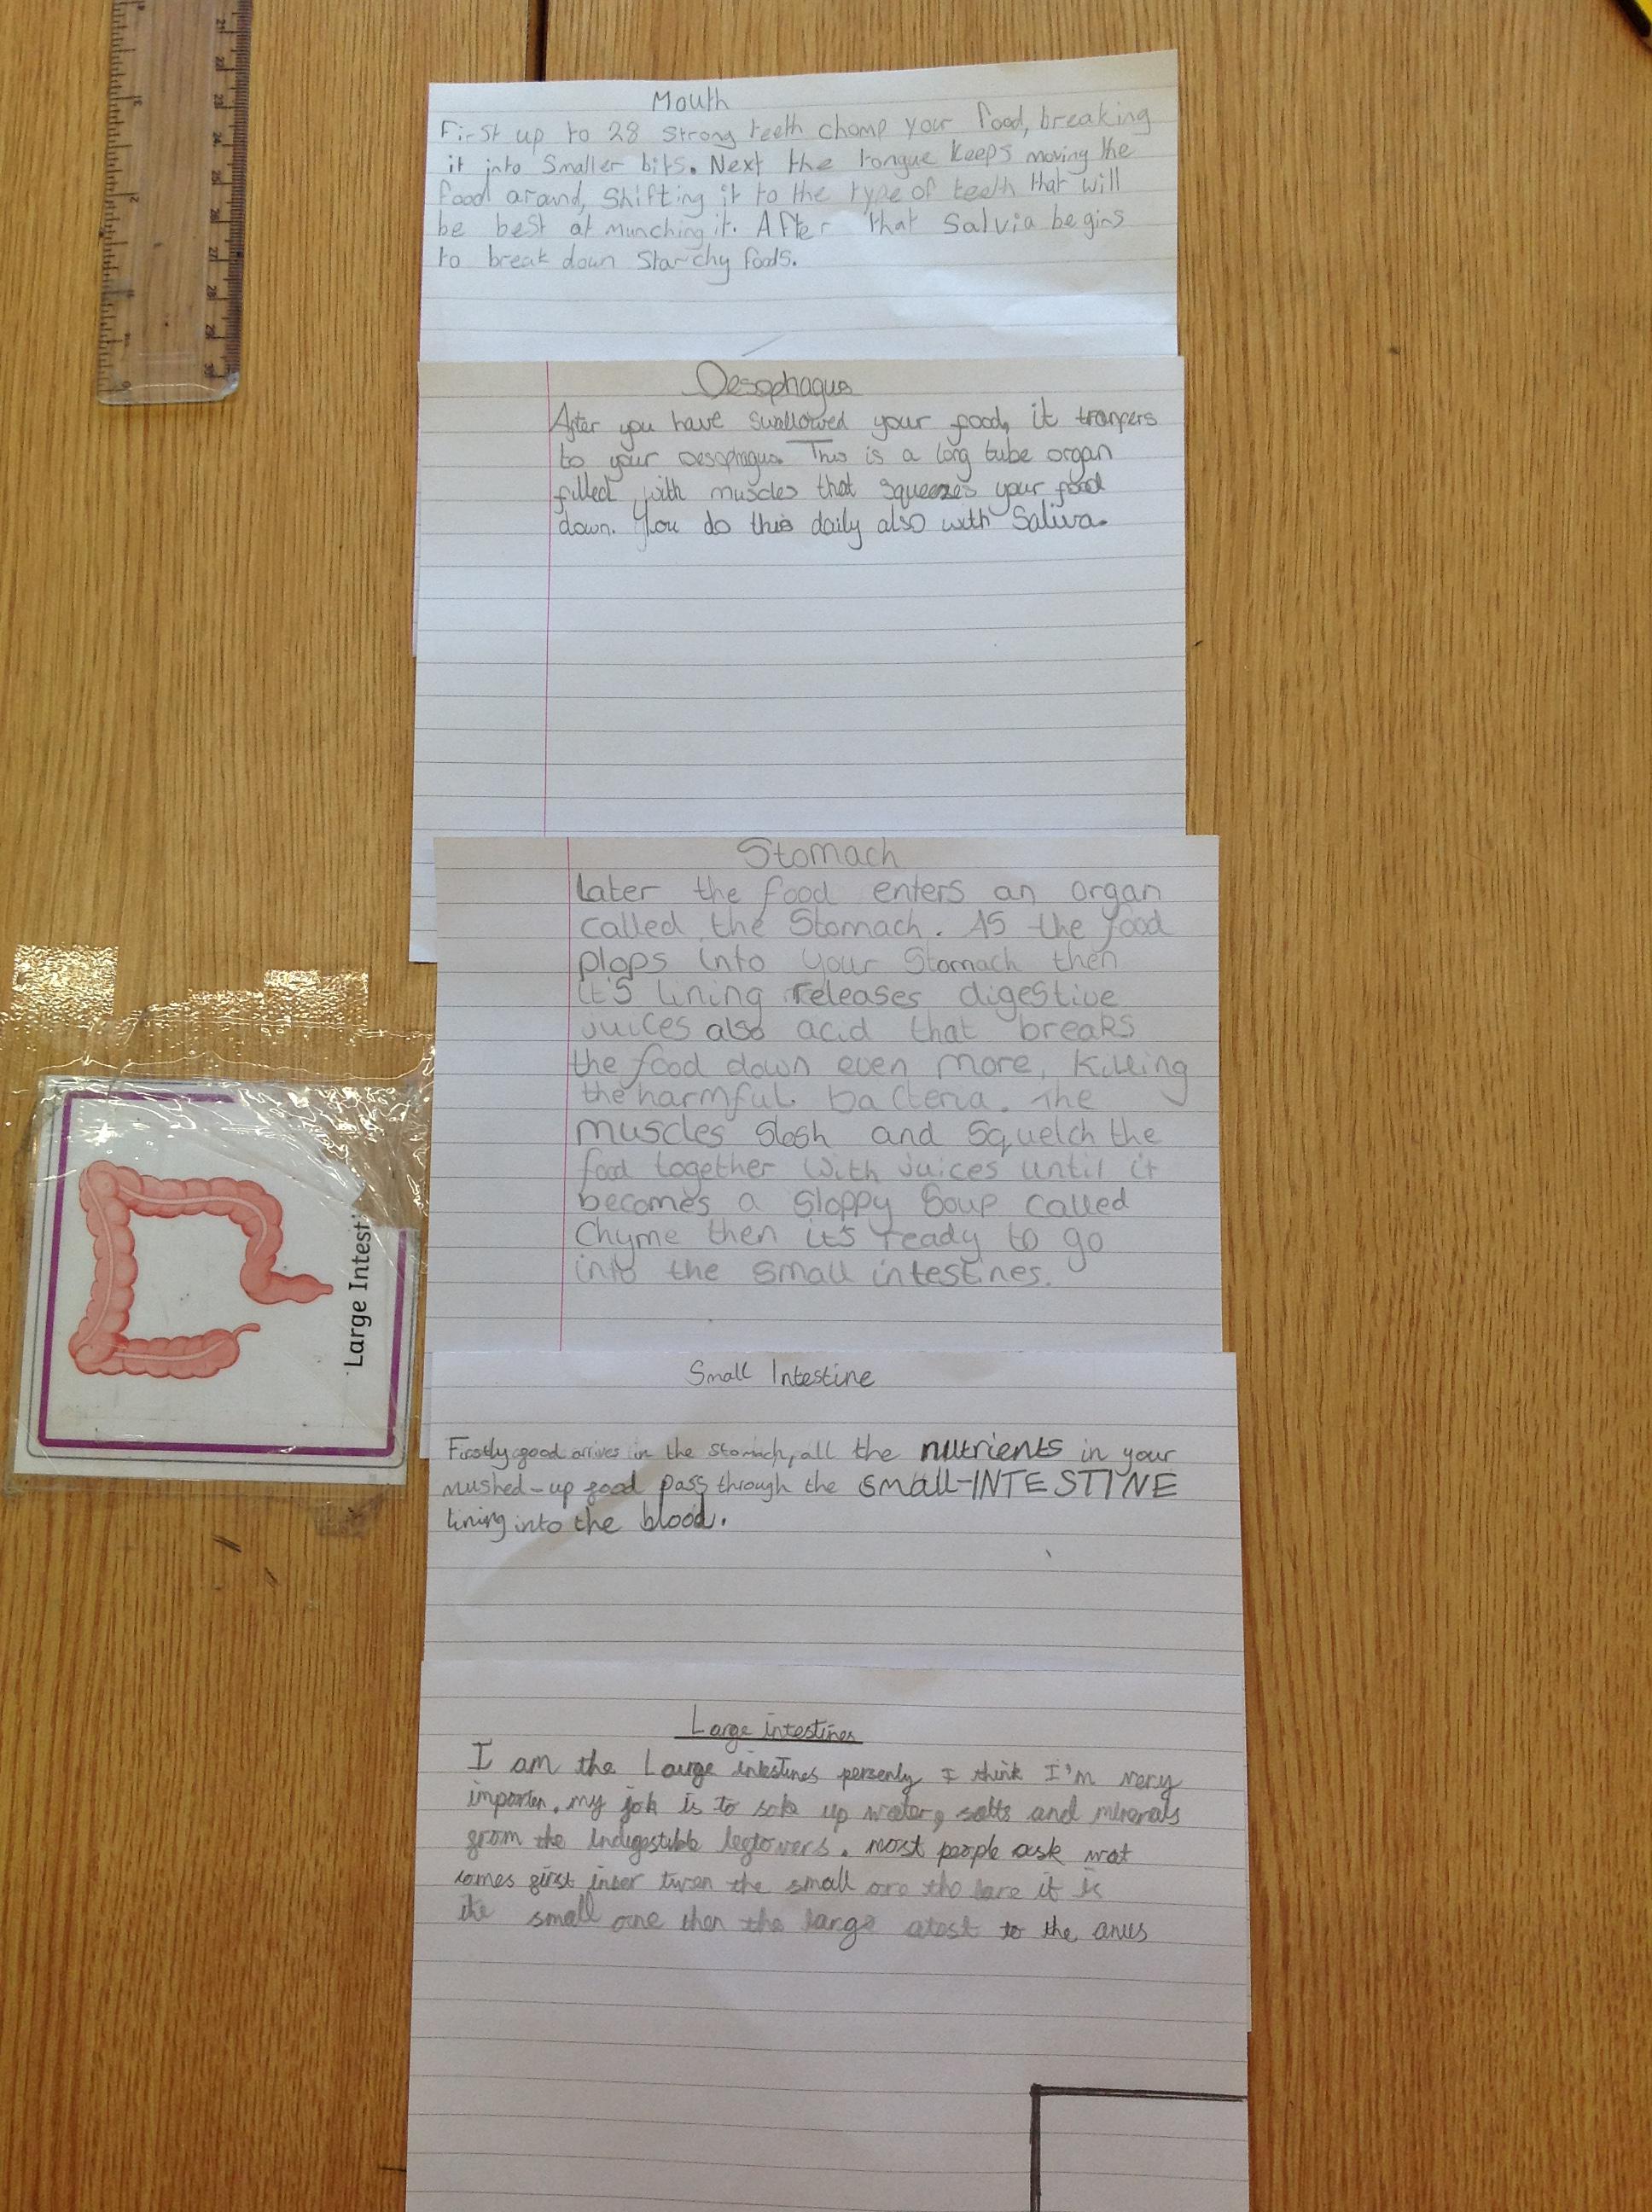 Mouth
First up to 28 strong teeth chomp your food, breaking
it into smaller bits. Next the tongue keeps moving the
food around, shifting it to the type of teeth that will
be best at munching it. After that Salvia begins
to break down starchy foods.
Oesophagus
After you have swallowed your food, it tranfers
to your oesophagus. This is a long tube organ
filled with muscles that squeezes your food
down. You do this daily also with Saliva.
Stomach
Later the food enters an organ
called the Stomach. As the food
plops into your Stomach then
it's lining releases digestive
juices also acid that breaks
the food down even more, killing
the harmful bacteria. The
muscles slosh and squelch the
food together with juices until it
becomes a sloppy soup called
Chyme then it's ready to go
into the small intestines.
Large Intest
Small Intestine
Firstly food arrives in the stomach, all the nutrients in your
mushed-up food pass through the small-INTESTINE
lining into the blood.
Large intestines
I am the Large intestines persenly I think I'm very
importen. my job is to sok up water, salts and minerals
from the indigestible leftovers. most people ask wat
comes first the small ore the lare it is
the small one then the large to the anus